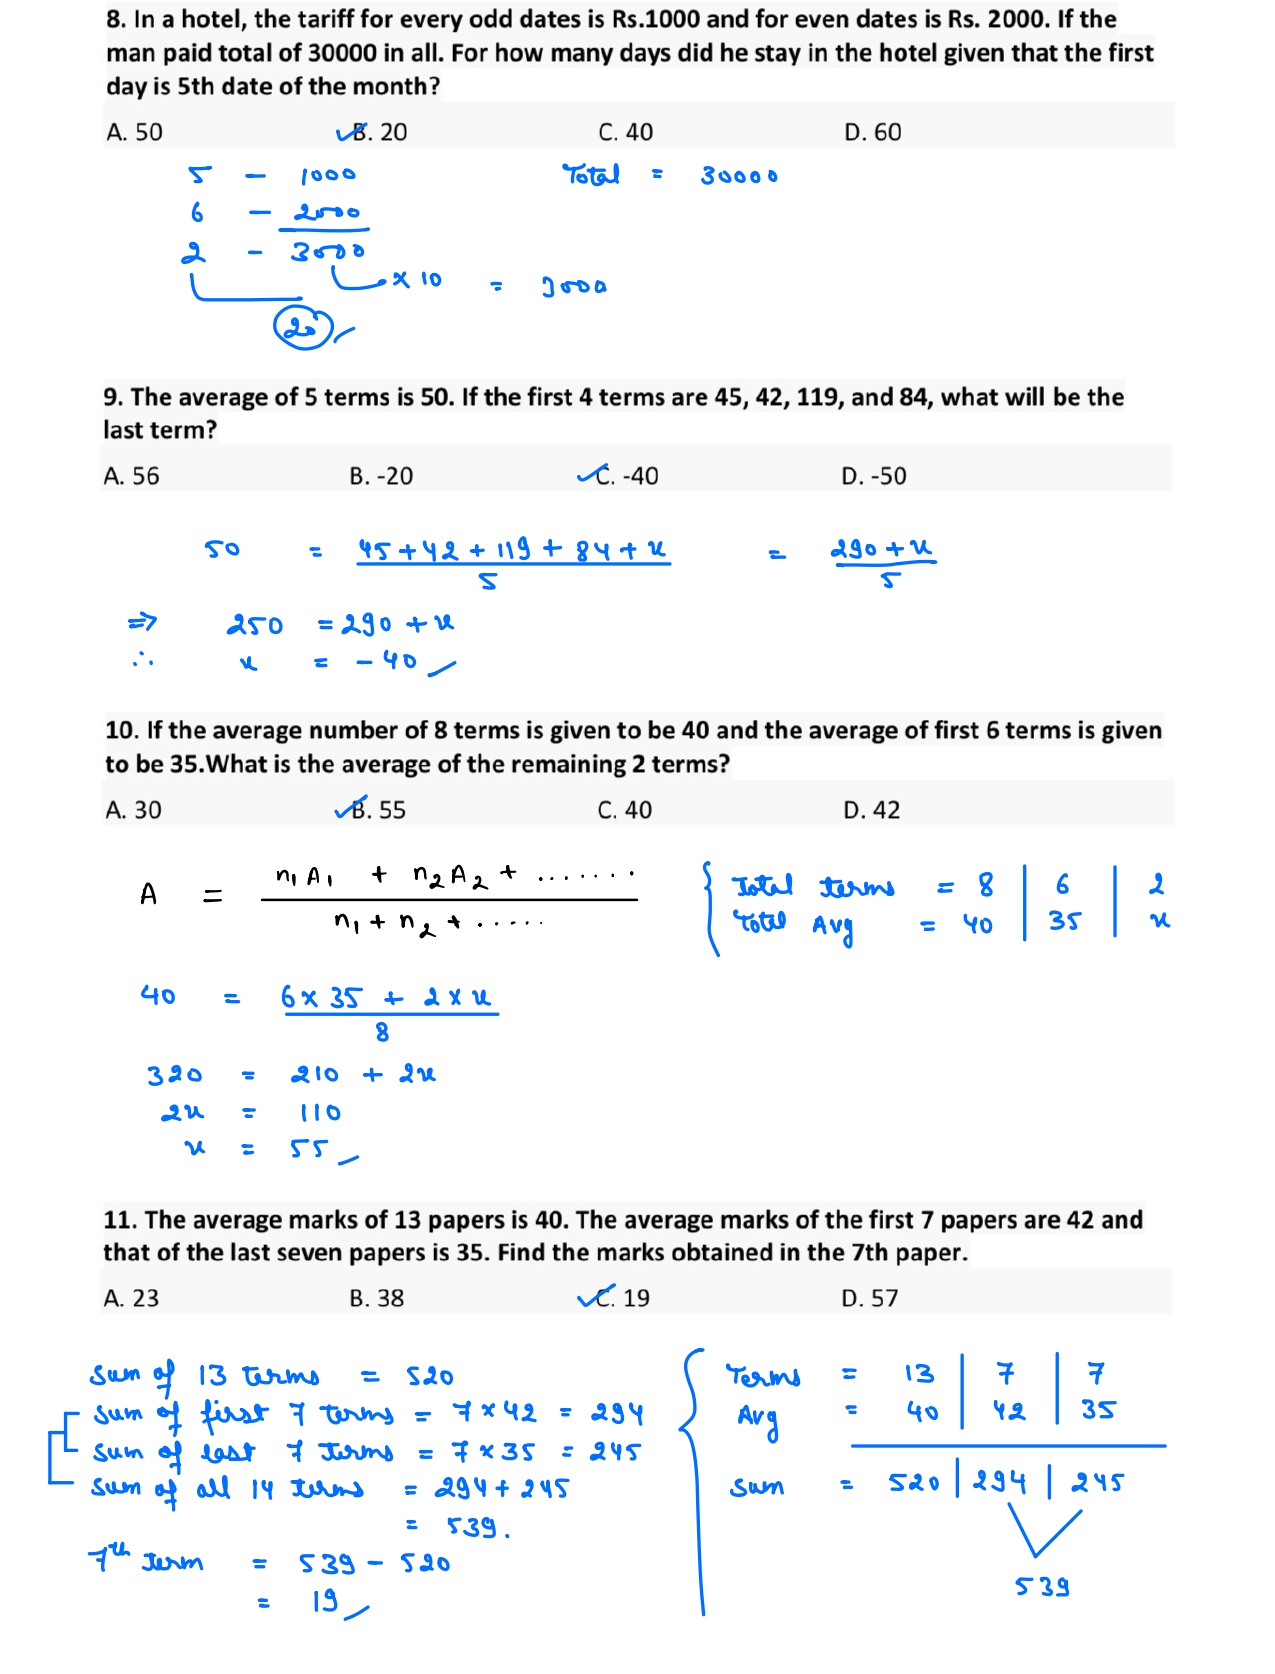 8. In a hotel, the tariff for every odd dates is Rs.1000 and for even dates is Rs. 2000. If the
man paid total of 30000 in all. For how many days did he stay in the hotel given that the first
day is 5th date of the month?
A. 50 B. 20 C. 40 D. 60
5 - 1000 Total = 30000
6 - 2000
2 - 3000
x 10 = 3000
20
9. The average of 5 terms is 50. If the first 4 terms are 45, 42, 119, and 84, what will be the
last term?
A. 56 B. -20 C. -40 D. -50
50 = 45+42+119+84+x = 290+x
5 5
⇒ 250 = 290 + x
∴ x = -40
10. If the average number of 8 terms is given to be 40 and the average of first 6 terms is given
to be 35.What is the average of the remaining 2 terms?
A. 30 B. 55 C. 40 D. 42
A = n₁A₁ + n₂A₂ + .......
n₁ + n₂ + .....
{ Total terms = 8 | 6 | 2
Total Avg = 40 | 35 | x
40 = 6x35 + 2xx
8
320 = 210 + 2x
2x = 110
x = 55
11. The average marks of 13 papers is 40. The average marks of the first 7 papers are 42 and
that of the last seven papers is 35. Find the marks obtained in the 7th paper.
A. 23 B. 38 C. 19 D. 57
Sum of 13 terms = 520
Sum of first 7 terms = 7x42 = 294
Sum of last 7 terms = 7x35 = 245
Sum of all 14 terms = 294+245
= 539.
7th term = 539 - 520
= 19
{ Terms = 13 | 7 | 7
Avg = 40 | 42 | 35
Sum = 520 | 294 | 245
539